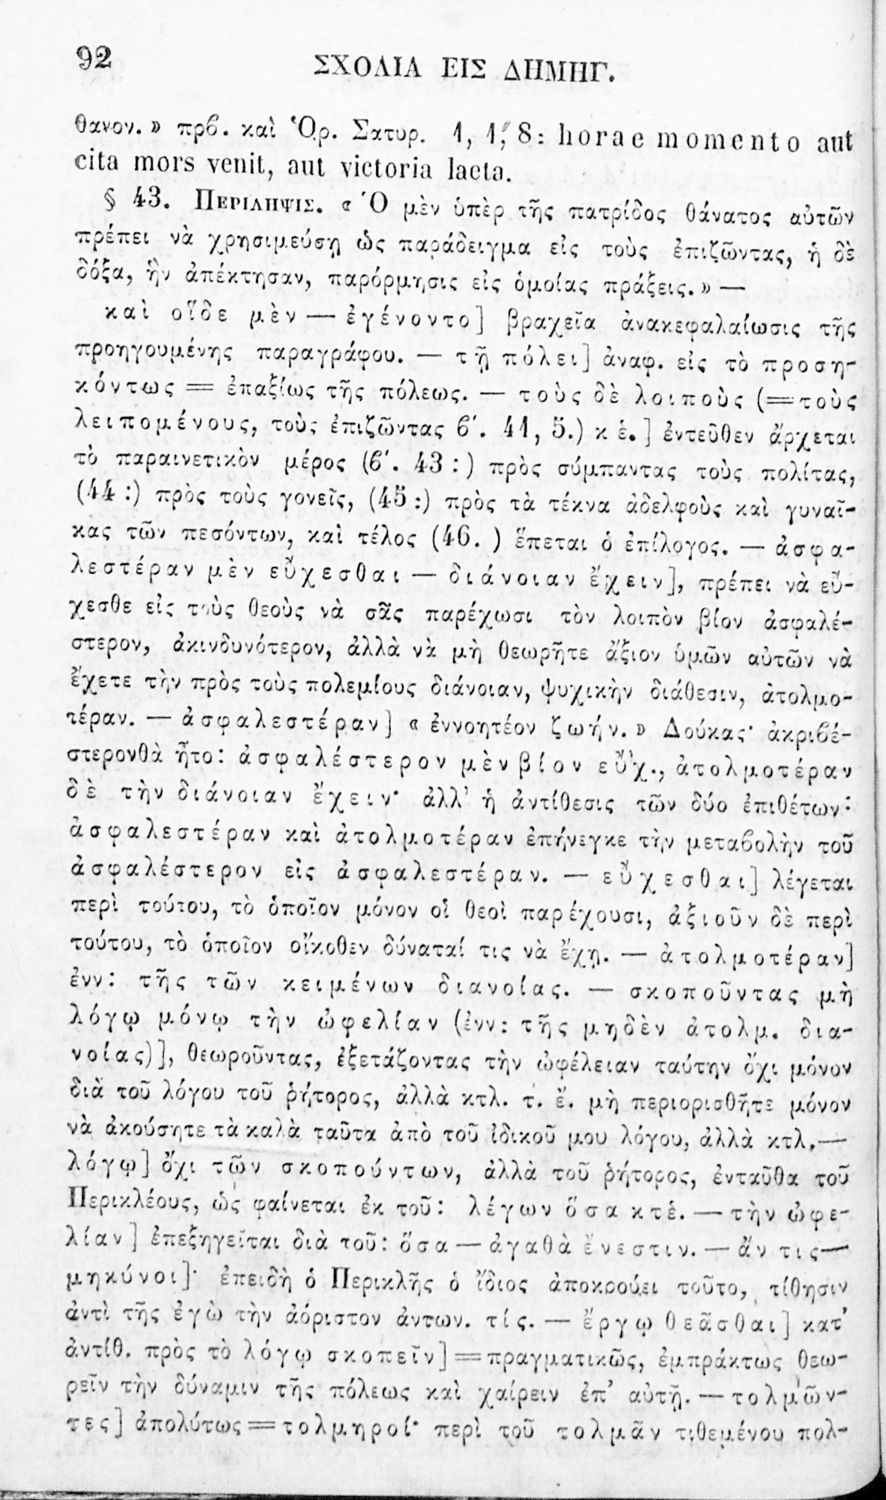 92 ΣΧΟΛΙΑ ΕΙΣ ΔΗΜΗΓ.
θανον.» πρϐ. καὶ Ὁρ. Σατυρ. 1, 1, 8: horae momento aut
cita mors venit, aut victoria laeta.
§ 43. ΠΕΡΙΛΗΨΙΣ. « Ὁ μὲν ὑπὲρ τῆς πατρίδος θάνατος αὐτῶν
πρέπει νὰ χρησιμεύσῃ ὡς παράδειγμα εἰς τοὺς ἐπιζῶντας, ἡ δὲ
δόξα, ἣν ἀπέκτησαν, παρόρμησις εἰς ὁμοίας πράξεις.» —
καὶ οἵδε μὲν — ἐγένοντο] βραχεῖα ἀνακεφαλαίωσις τῆς
προηγουμένης παραγράφου. — τῇ πόλει] ἀναφ. εἰς τὸ προση-
κόντως = ἐπαξίως τῆς πόλεως. — τοὺς δὲ λοιποὺς (= τοὺς
λειπομένους, τοὺς ἐπιζῶντας ϐ′. 41, 5.) κ ἑ.] ἐντεῦθεν ἄρχεται
τὸ παραινετικὸν μέρος (ϐ′. 43 :) πρὸς σύμπαντας τοὺς πολίτας,
(44 :) πρὸς τοὺς γονεῖς, (45 :) πρὸς τὰ τέκνα ἀδελφοὺς καὶ γυναῖ-
κας τῶν πεσόντων, καὶ τέλος (46. ) ἕπεται ὁ ἐπίλογος. — ἀσφα-
λεστέραν μὲν εὔχεσθαι — διάνοιαν ἔχειν], πρέπει νὰ εὔ-
χεσθε εἰς τοὺς θεοὺς νὰ σᾶς παρέχωσι τὸν λοιπὸν βίον ἀσφαλέ-
στερον, ἀκινδυνότερον, ἀλλὰ νὰ μὴ θεωρῆτε ἄξιον ὑμῶν αὐτῶν νὰ
ἔχετε τὴν πρὸς τοὺς πολεμίους διάνοιαν, ψυχικὴν διάθεσιν, ἀτολμο-
τέραν. — ἀσφαλεστέραν] « ἐννοητέον ζωήν.» Δούκας· ἀκριϐέ-
στερονθὰ ἦτο: ἀσφαλέστερον μὲν βίον εὔχ., ἀτολμοτέραν
δὲ τὴν διάνοιαν ἔχειν· ἀλλ' ἡ ἀντίθεσις τῶν δύο ἐπιθέτων:
ἀσφαλεστέραν καὶ ἀτολμοτέραν ἐπήνεγκε τὴν μεταϐολὴν τοῦ
ἀσφαλέστερον εἰς ἀσφαλεστέραν. — εὔχεσθαι] λέγεται
περὶ τούτου, τὸ ὁποῖον μόνον οἱ θεοὶ παρέχουσι, ἀξιοῦν δὲ περὶ
τούτου, τὸ ὁποῖον οἴκοθεν δύναταί τις νὰ ἔχῃ. — ἀτολμοτέραν]
ἐνν: τῆς τῶν κειμένων διανοίας. — σκοποῦντας μὴ
λόγῳ μόνῳ τὴν ὠφελίαν (ἐνν: τῆς μηδὲν ἀτολμ. δια-
νοίας)], θεωροῦντας, ἐξετάζοντας τὴν ὠφέλειαν ταύτην ὄχι μόνον
διὰ τοῦ λόγου τοῦ ῥήτορος, ἀλλὰ κτλ. τ. ἔ. μὴ περιορισθῆτε μόνον
νὰ ἀκούσητε τὰ καλὰ ταῦτα ἀπὸ τοῦ ἰδικοῦ μου λόγου, ἀλλὰ κτλ.—
λόγῳ] ὄχι τῶν σκοπούντων, ἀλλὰ τοῦ ῥήτορος, ἐνταῦθα τοῦ
Περικλέους, ὡς φαίνεται ἐκ τοῦ: λέγων ὅσα κτἑ. — τὴν ὠφε-
λίαν] ἐπεξηγεῖται διὰ τοῦ: ὅσα — ἀγαθὰ ἔνεστιν. — ἄν τις —
μηκύνοι]· ἐπειδὴ ὁ Περικλῆς ὁ ἴδιος ἀποκρούει τοῦτο, τίθησιν
ἀντὶ τῆς ἐγὼ τὴν ἀόριστον ἀντων. τίς. — ἔργῳ θεᾶσθαι] κατ'
ἀντίθ. πρὸς τὸ λόγῳ σκοπεῖν] = πραγματικῶς, ἐμπράκτως θεω-
ρεῖν τὴν δύναμιν τῆς πόλεως καὶ χαίρειν ἐπ' αὐτῇ. — τολμῶν-
τες] ἀπολύτως = τολμηροί· περὶ τοῦ τολμᾶν τιθεμένου πολ-